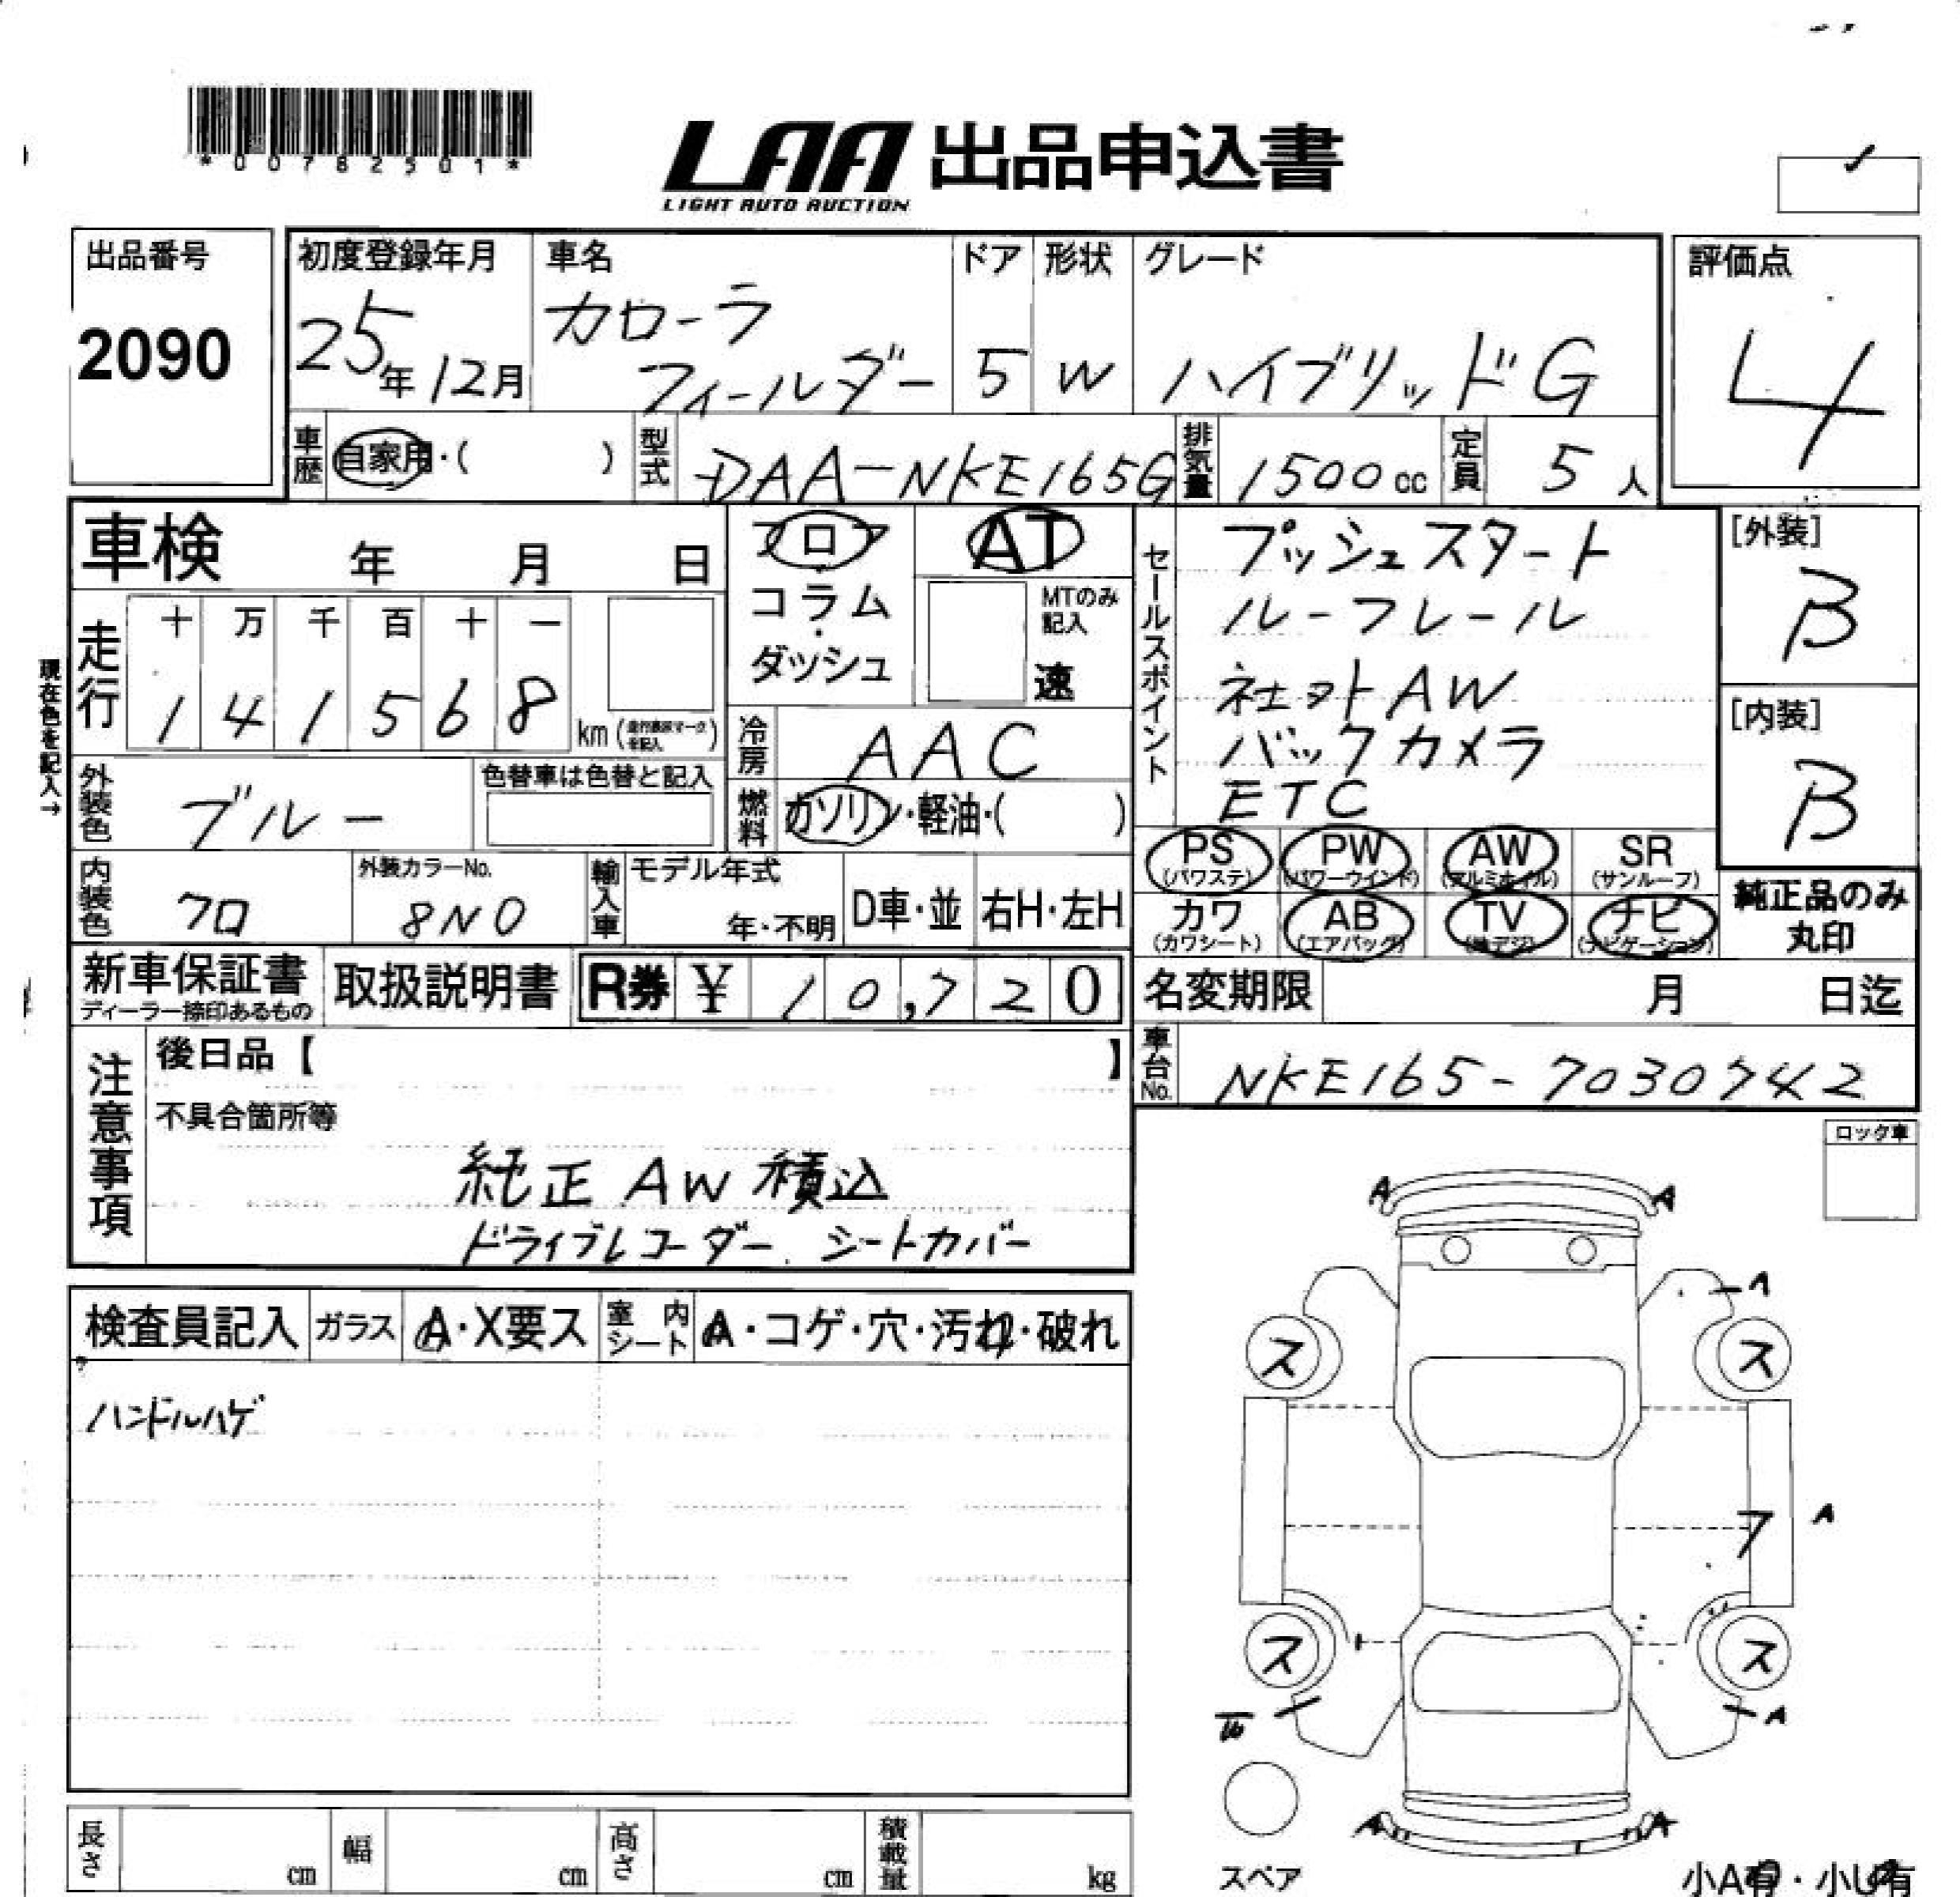 LAA 出品申込書
LIGHT AUTO AUCTION
出品番号
2090
初度登録年月
25年12月
車名
カローラ
フィールダー
ドア
5
形状
W
グレード
ハイブリッドG
評価点
4
車歴
自家用・( )
型式
DAA-NKE165G
排気量
1500cc
定員
5人
車検 年 月 日
フロア
コラム
・
ダッシュ
AT
MTのみ
記入
速
走行
十 万 千 百 十 一
1 4 1 5 6 8 km
現在色を記入→
冷房
AAC
燃料
ガソリン・軽油・( )
外装色
ブルー
色替車は色替と記入
内装色
クロ
外装カラーNo.
8N0
輸入車
モデル年式
年・不明
D車・並
右H・左H
セールスポイント
プッシュスタート
ルーフレール
社外AW
バックカメラ
ETC
[外装]
B
[内装]
B
PS
(パワステ)
PW
(パワーウインド)
AW
(アルミホイル)
SR
(サンルーフ)
カワ
(カワシート)
AB
(エアバッグ)
TV
(地デジ)
ナビ
(ナビゲーション)
純正品のみ
丸印
新車保証書
ディーラー捺印あるもの
取扱説明書
R券 ¥ 10,720
名変期限 月 日迄
車台No.
NKE165-7030742
注意事項
後日品【 】
不具合箇所等
純正 AW 積込
ドライブレコーダー、シートカバー
ロック車
検査員記入
ガラス
A・X要ス
室内シート
A・コゲ・穴・汚れ・破れ
ハンドルハゲ
A A
A
ス ス
フ A
ス ス
A
A A
スペア
小A有・小U有
長さ cm
幅 cm
高さ cm
積載量 kg